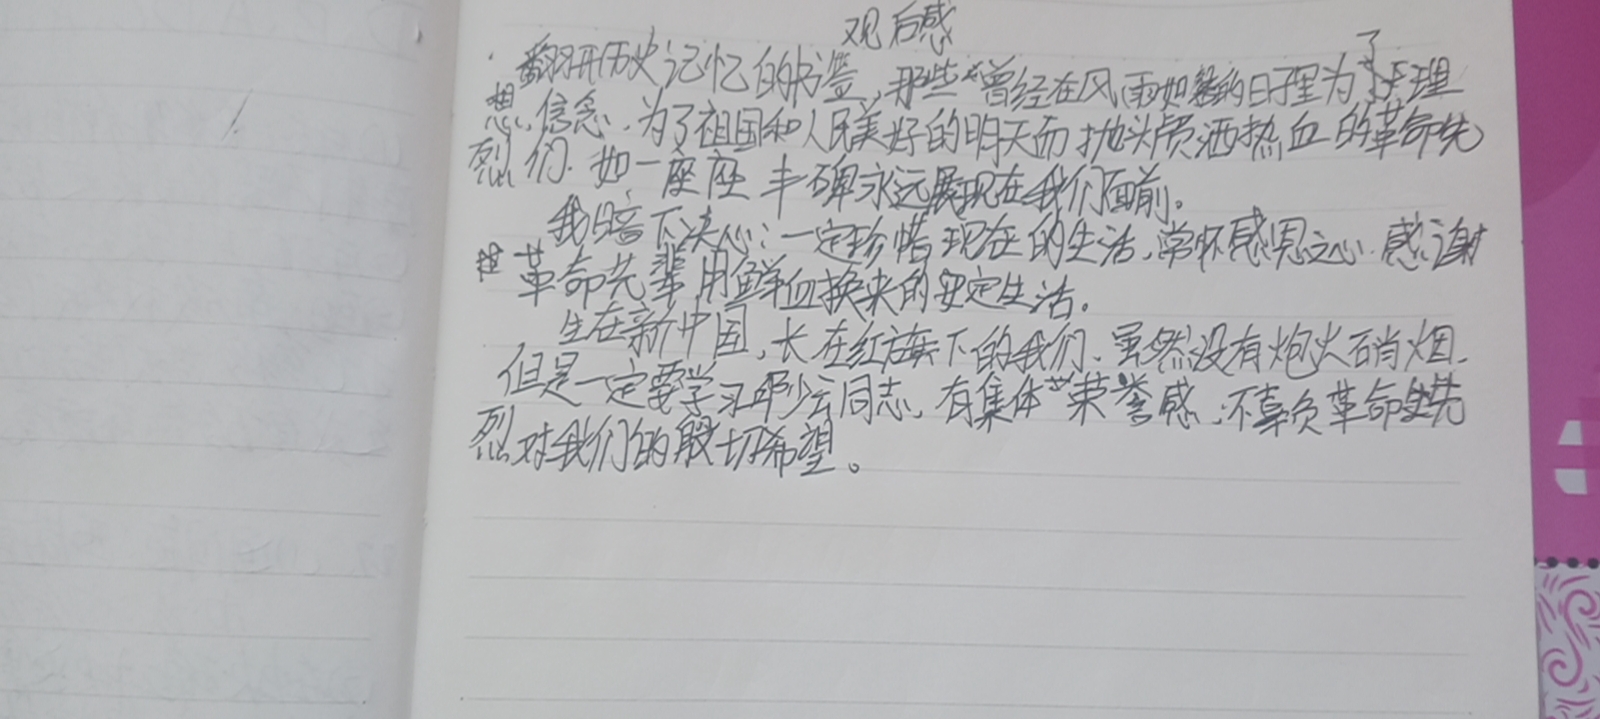 观后感
翻开历史记忆的书签,那些曾经在风雨如磐的日子里为了理
想,信念,为了祖国和人民美好的明天而抛头颅洒热血的革命先
烈们.如一座座丰碑永远展现在我们面前。
我暗下决心:一定珍惜现在的生活,常怀感恩之心.感谢
革命先辈用鲜血换来的安定生活。
生在新中国,长在红旗下的我们,虽然没有炮火硝烟.
但是一定要学习邱少云同志,有集体荣誉感,不辜负革命先
烈对我们的殷切希望。